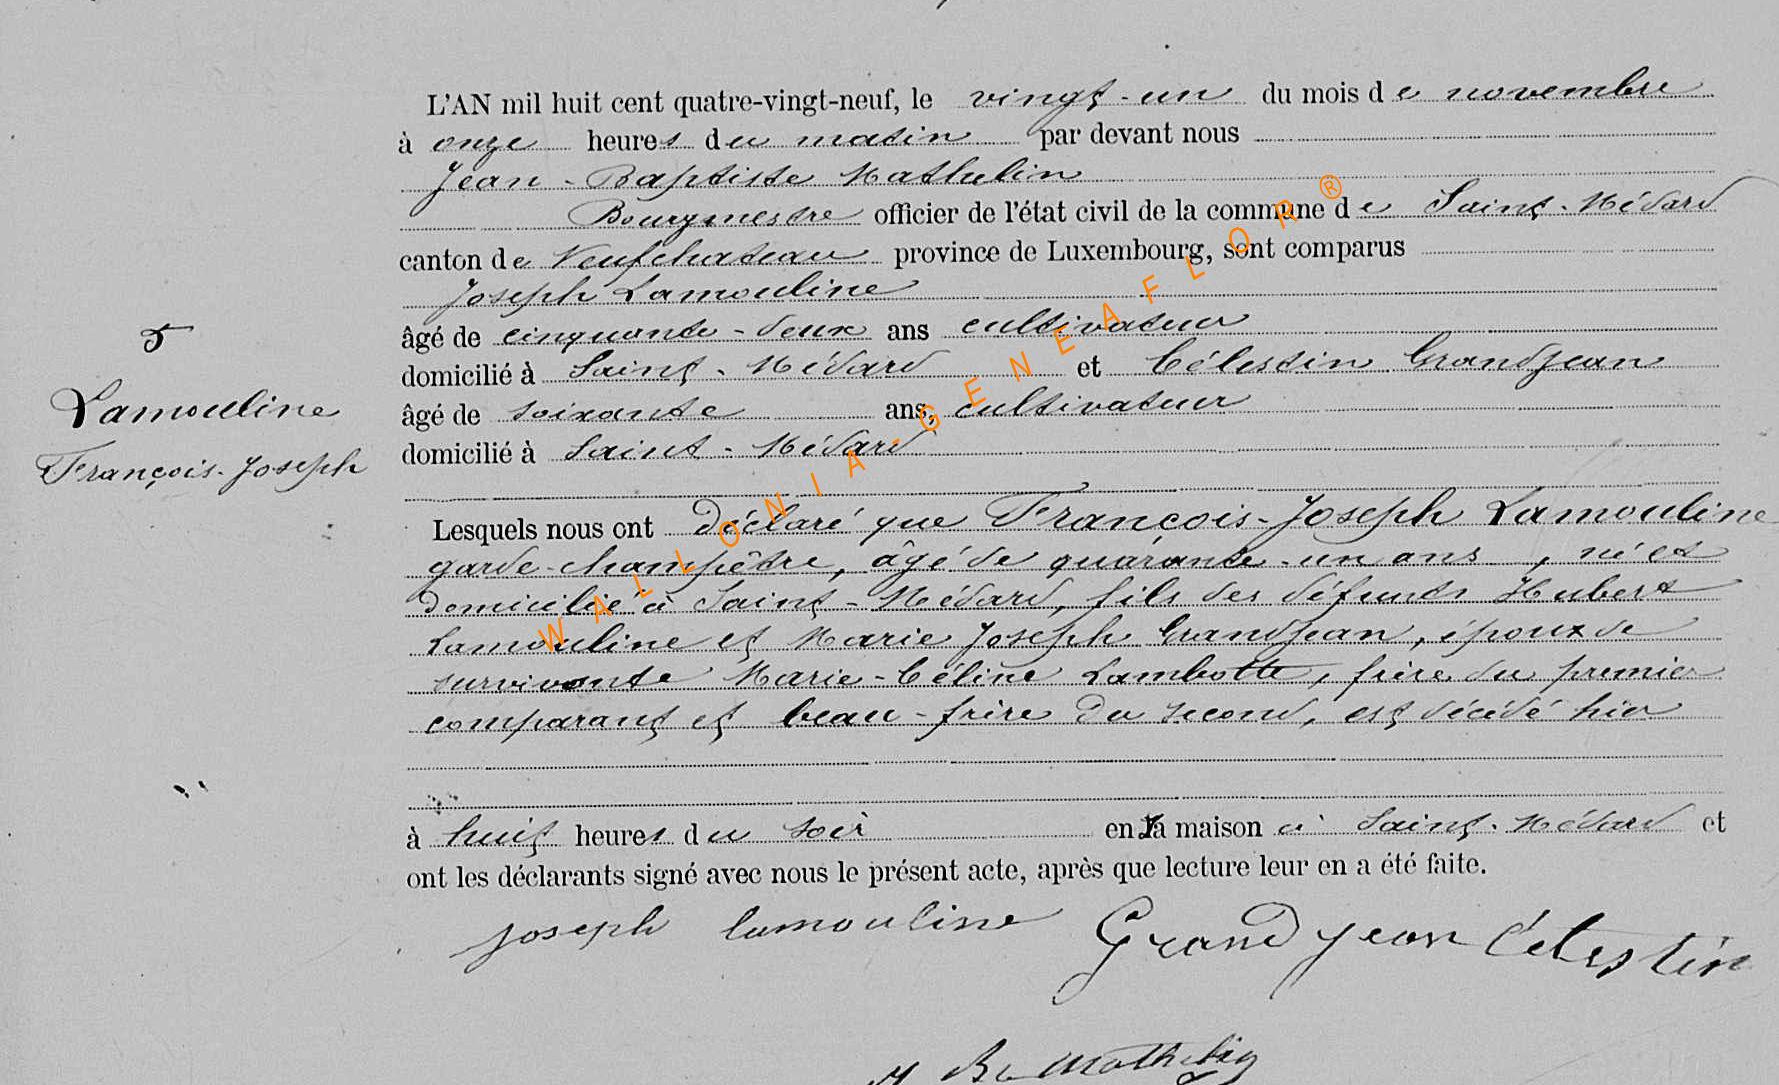 L'AN mil huit cent quatre-vingt-neuf, le vingt-un du mois de novembre
à onze heures du matin par devant nous
Jean-Baptiste Mathelin
Bourgmestre officier de l'état civil de la commune de Saint-Médard
canton de Neufchateau province de Luxembourg, sont comparus
Joseph Lamouline
âgé de cinquante-deux ans cultivateur
domicilié à Saint-Médard et Célestin Grandjean
âgé de soixante ans, cultivateur
domicilié à Saint-Médard
5
Lamouline
François-Joseph
Lesquels nous ont déclaré que François-Joseph Lamouline
garde-champêtre, âgé de quarante-un ans, né et
domicilié à Saint-Médard, fils des défunts Hubert
Lamouline et Marie Joseph Grandjean, époux de
survivante Marie-Céline Lambotte, frère du premier
comparant et beau-frère du second, est décédé hier
à huit heures du soir en la maison à Saint-Médard et
ont les déclarants signé avec nous le présent acte, après que lecture leur en a été faite.
joseph lamouline Grandjean Célestin
J Bte Mathelin
WALLONIA.GENEAFLOR®